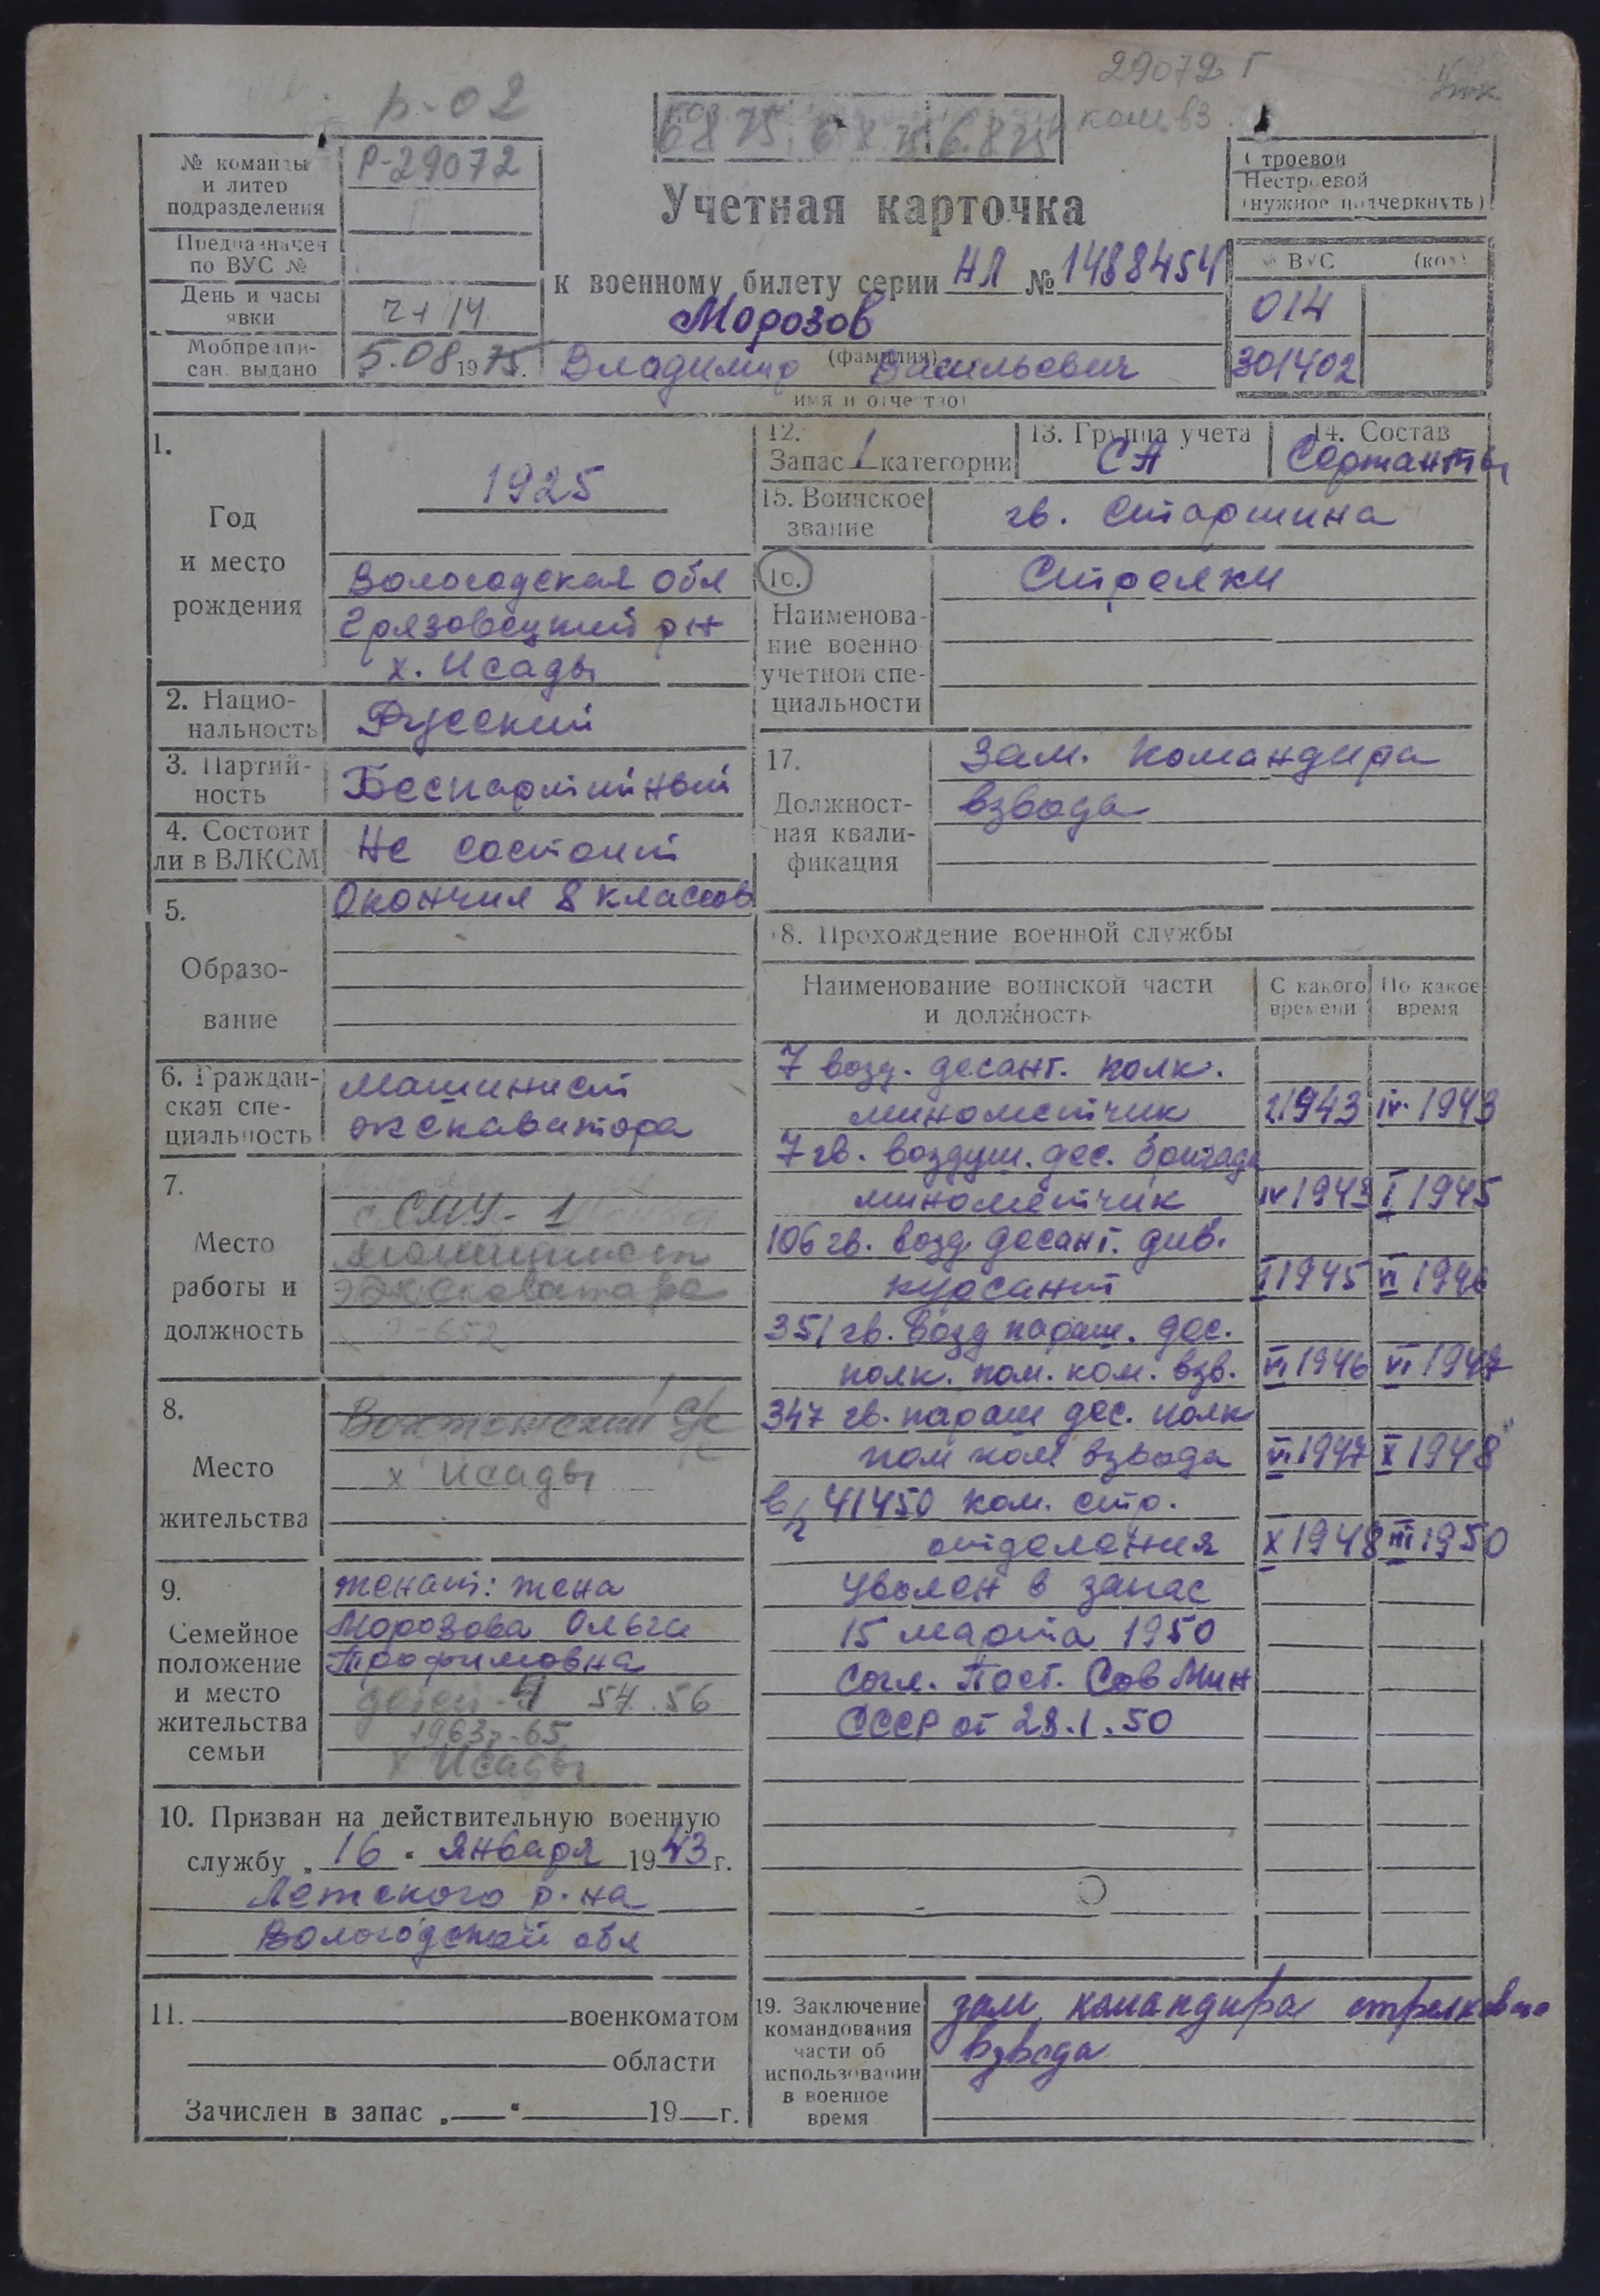 29072 Г
р-02
ком. вз.
№ команды и литер подразделения
Р-29072
Предназначен по ВУС №
День и часы явки
2+ 14
Мобпредписан. выдано
5.08 1975.
68 75. 6 8 75 6.8 75
Учетная карточка
к военному билету серии НЛ № 1488454
Морозов
(фамилия)
Владимир Васильевич
(имя и отчество)
Строевой
Нестроевой
(нужное подчеркнуть)
№ ВУС (код)
014
301402
1.
Год и место рождения
1925
Вологодская обл
Грязовецкий р-н
х. Исады
2. Национальность
Русский
3. Партийность
Беспартийный
4. Состоит ли в ВЛКСМ
Не состоит
5.
Образование
Окончил 8 классов
6. Гражданская специальность
Машинист
экскаватора
7.
Место работы и должность
СМУ-1
машинист
экскаватора
Э-652
8.
Место жительства
Вохтожский с/с
х Исады
9.
Семейное положение и место жительства семьи
женат: жена
Морозова Ольга
Трофимовна
детей-4 54. 56
1963г-65
х Исады
10. Призван на действительную военную
службу „16“ января 1943 г.
Лежского р-на
Вологодской обл
11. военкоматом
области
Зачислен в запас „ “ 19 г.
12.
Запас 1 категории
13. Группа учета
СА
14. Состав
Сержанты
15. Воинское звание
гв. Старшина
16.
Наименование военно-учетной специальности
Стрелки
17.
Должностная квалификация
Зам. командира
взвода
18. Прохождение военной службы
Наименование воинской части и должность
С какого времени
По какое время
7 возд. десант. полк.
минометчик I 1943 IV. 1943
7 гв. воздуш. дес. бригада
минометчик IV 1943 I 1945
106 гв. возд. десант. див.
курсант I 1945 VI 1946
351 гв. возд параш. дес.
полк. пом. ком. взв. VI 1946 VI 1947
347 гв. параш дес. полк
пом ком взвода VI 1947 X 1948
в/ч 41450 ком. стр.
отделения X 1948 III 1950
Уволен в запас
15 марта 1950
Согл. Пост. Сов Мин
СССР от 28.1.50
19. Заключение командования части об использовании в военное время
зам. командира стрелкового
взвода